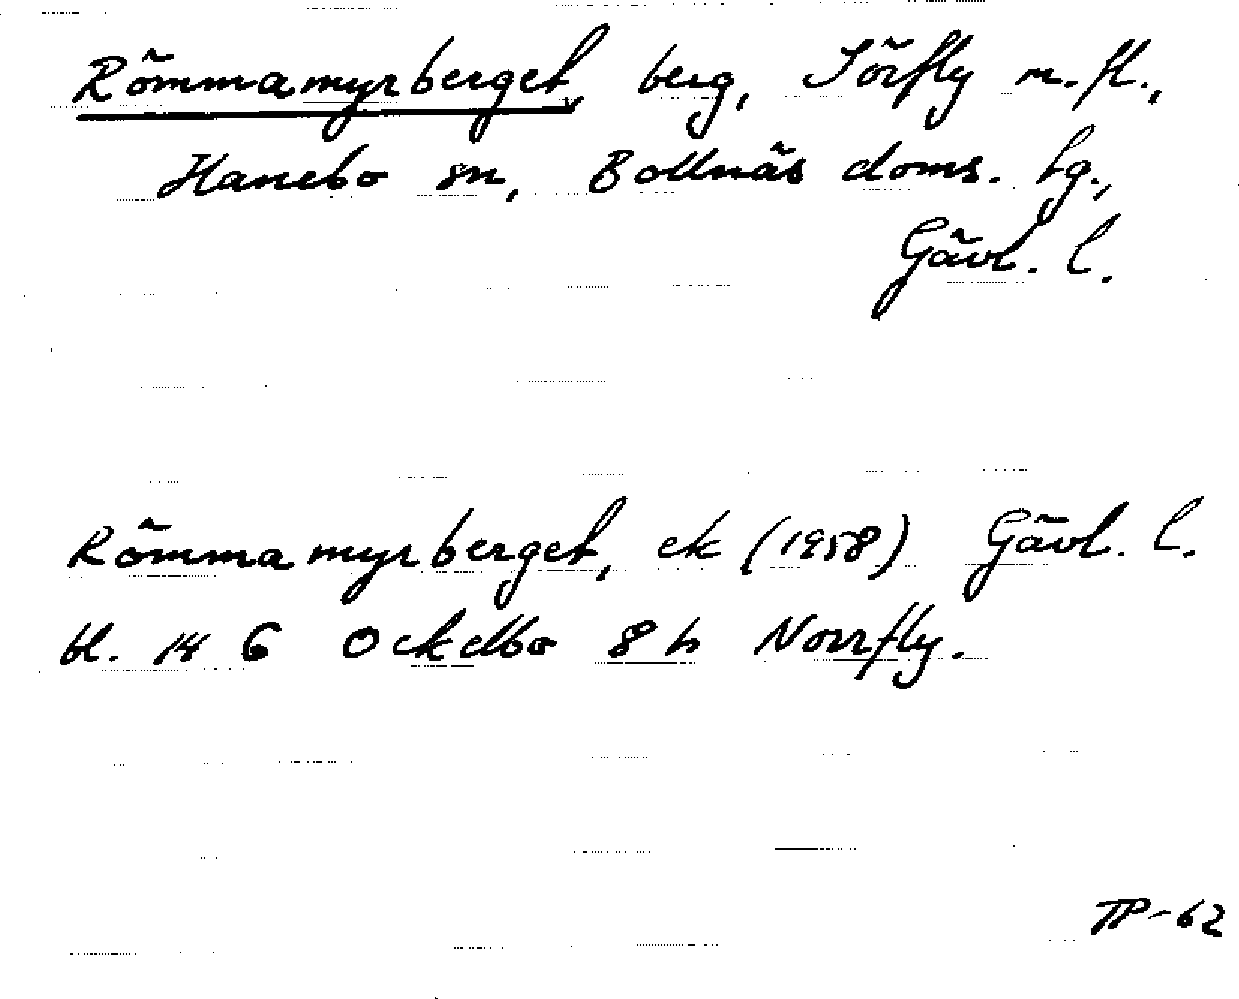 Römmamyrberget, berg, Sörfly m.fl.,
Hanebo sn, Bollnäs doms. hg.,
Gävl. l.
Römmamyrberget, ek (1958) Gävl. l.
bl. 14 G Ockelbo 8 h Norrfly.
TP-62